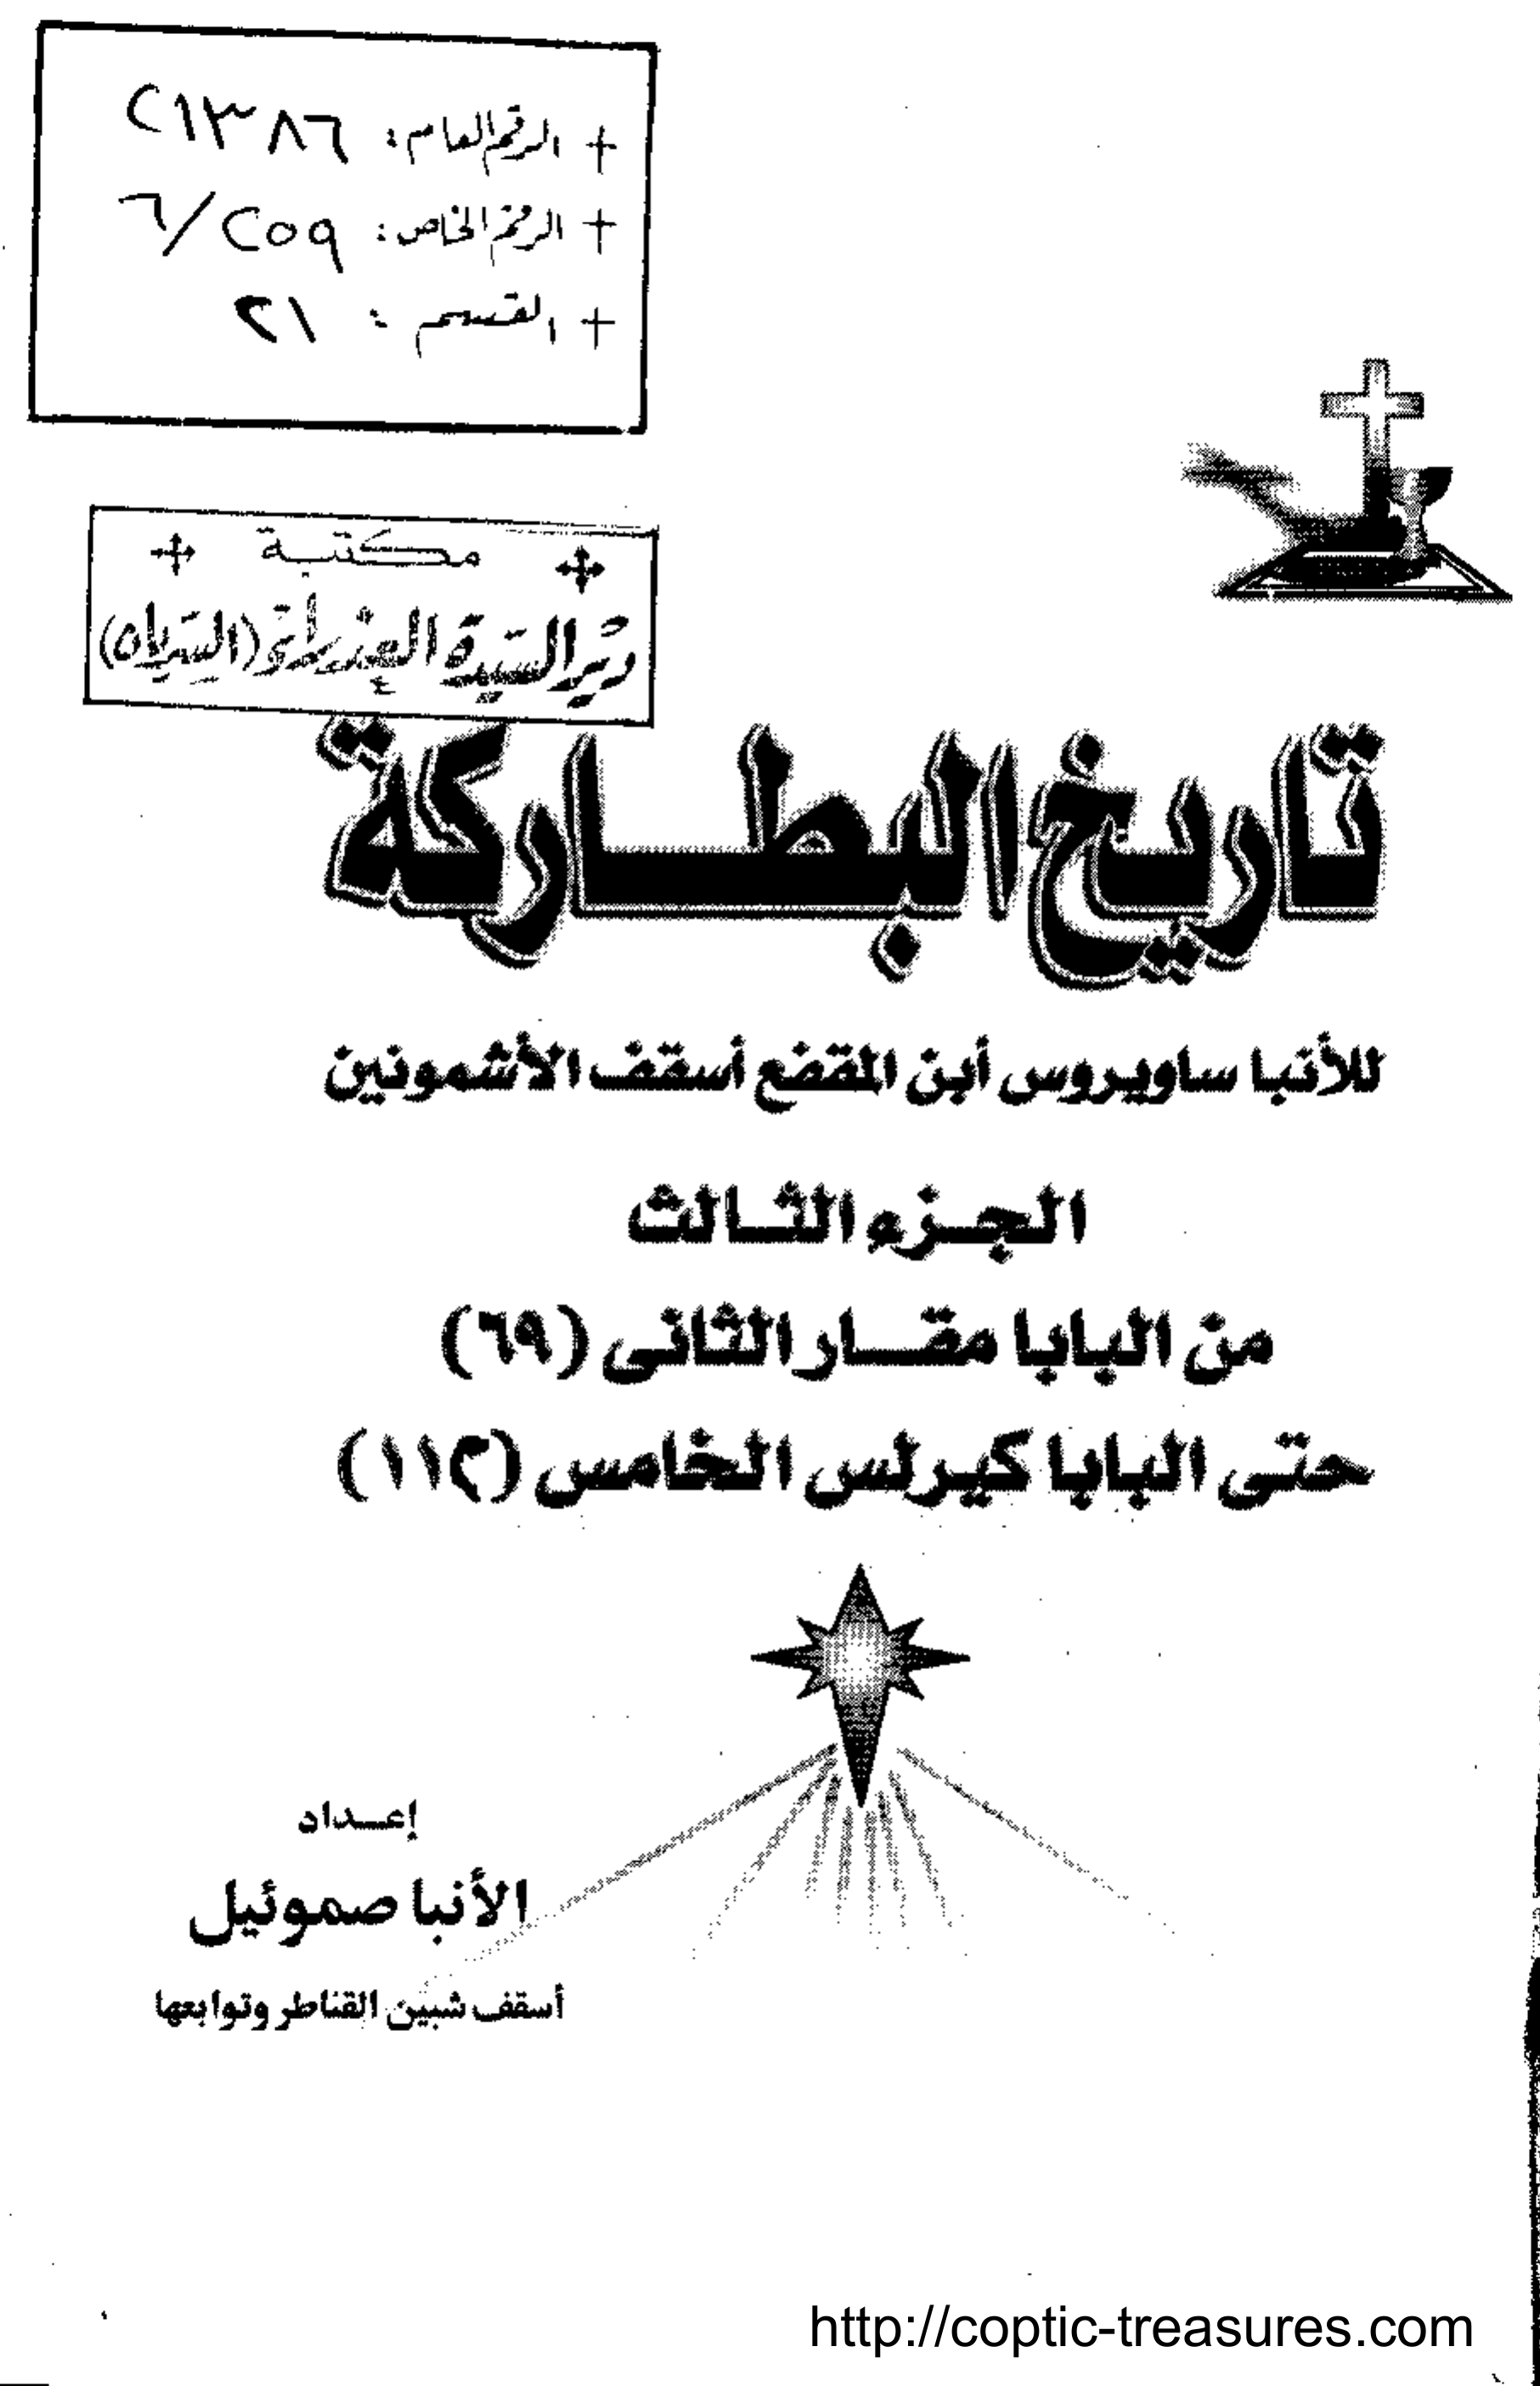 + الرقم العام: ٢١٣٨٦
+ الرقم الخاص: ٦/٢٥٩
+ القسم: ٢١
مكتبة
دير السيدة العذراء (السريان)
تاريخ البطاركة
للأنبا ساويروس أبن المقفع أسقف الأشمونين
الجزء الثالث
من البابا مقار الثانى (٦٩)
حتى البابا كيرلس الخامس (١١٢)
إعداد
الأنبا صموئيل
أسقف شبين القناطر وتوابعها
http://coptic-treasures.com